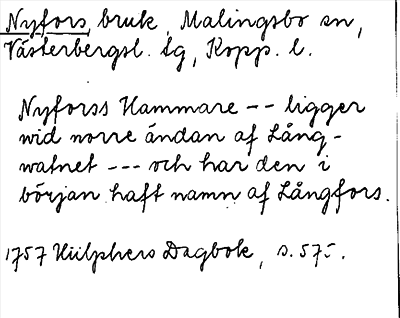 Nyfors, bruk, Malingsbo sn,
Västerbergsl. tg, Kopp. l.
Nyforss Hammare -- ligger
wid norre ändan af Lång-
watnet --- och har den i
början haft namn af Långfors.
1757 Hülphers Dagbok, s. 575.